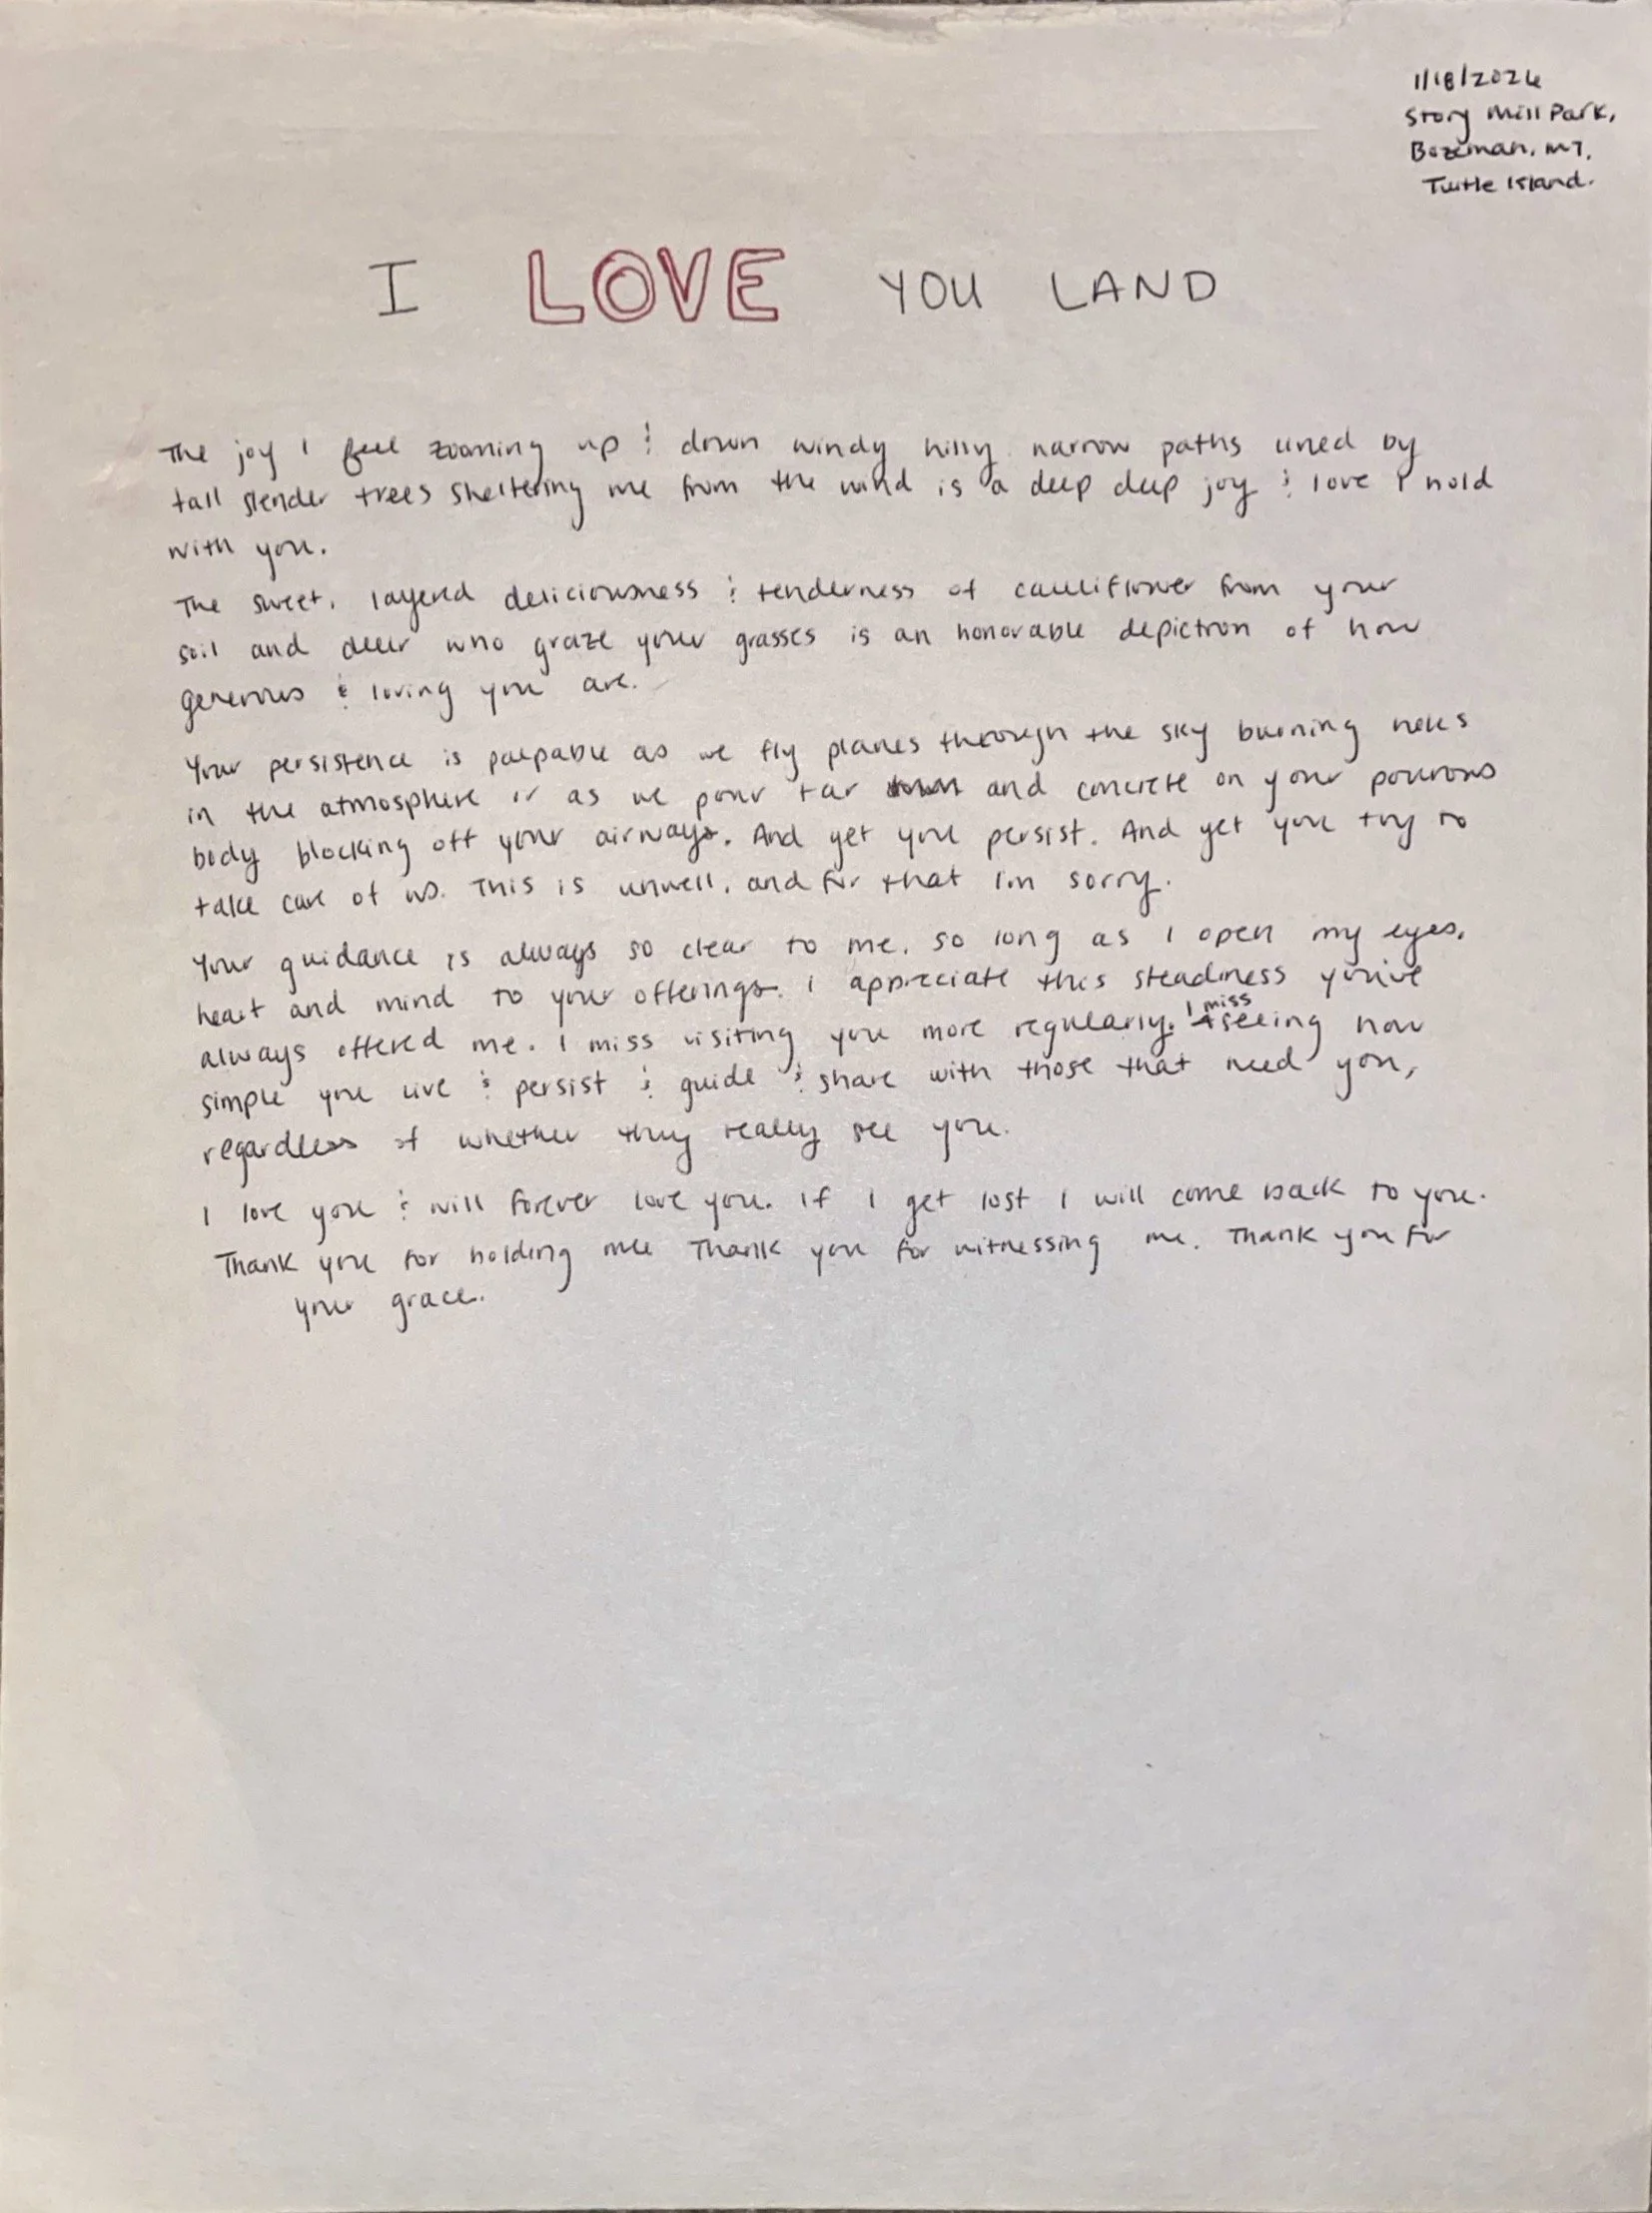 1/18/2026
Story Mill Park,
Bozeman, MT,
Turtle Island.
I LOVE YOU LAND
The joy I feel zooming up & down windy hilly narrow paths lined by
tall slender trees sheltering me from the wind is a deep deep joy & love I hold
with you.
The sweet, layered deliciousness & tenderness of cauliflower from your
soil and deer who graze your grasses is an honorable depiction of how
generous & loving you are.
Your persistence is palpable as we fly planes through the sky burning
in the atmosphere or as we pour tar and concrete on your pourous
body blocking off your airways. And yet you persist. And yet you try to
take care of us. This is unwell, and for that I'm sorry.
Your guidance is always so clear to me, so long as I open my eyes,
heart and mind to your offerings. I appreciate this steadiness you've
always offered me. I miss visiting you more regularly. I miss seeing how
simple you live & persist & guide & share with those that need you,
regardless of whether they really see you.
I love you & will forever love you. If I get lost I will come back to you.
Thank you for holding me Thank you for witnessing me. Thank you for
your grace.